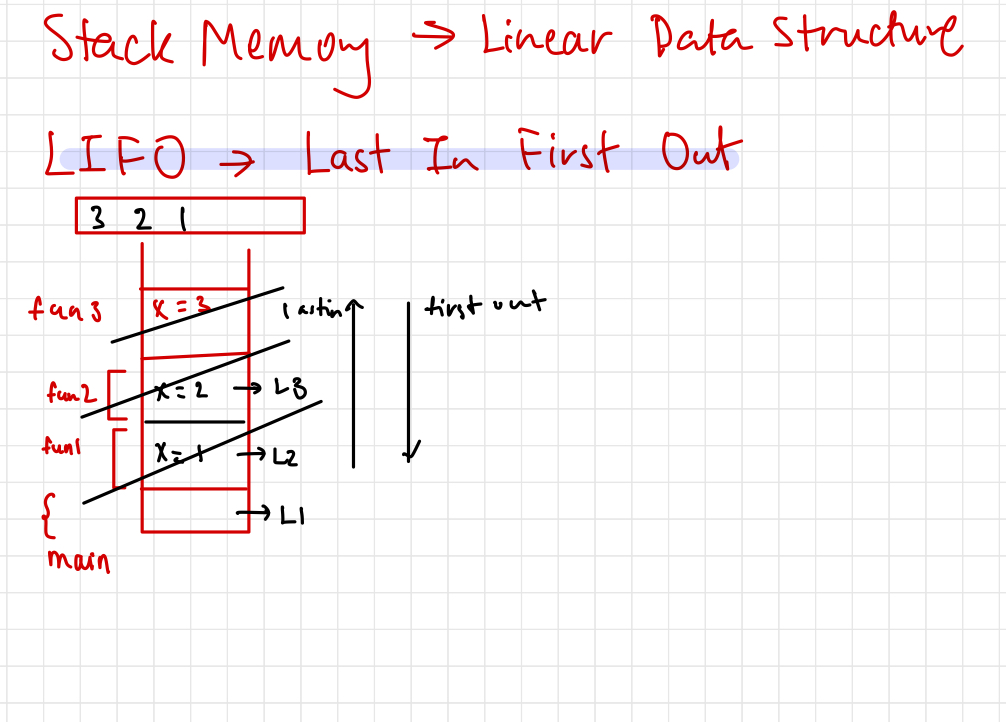 Stack Memory → Linear Data Structure
LIFO → Last In First Out
3 2 1
fun3 x = 3 lastin first out
fun2 x = 2 → L3
fun1 x = 1 → L2
{ → L1
main